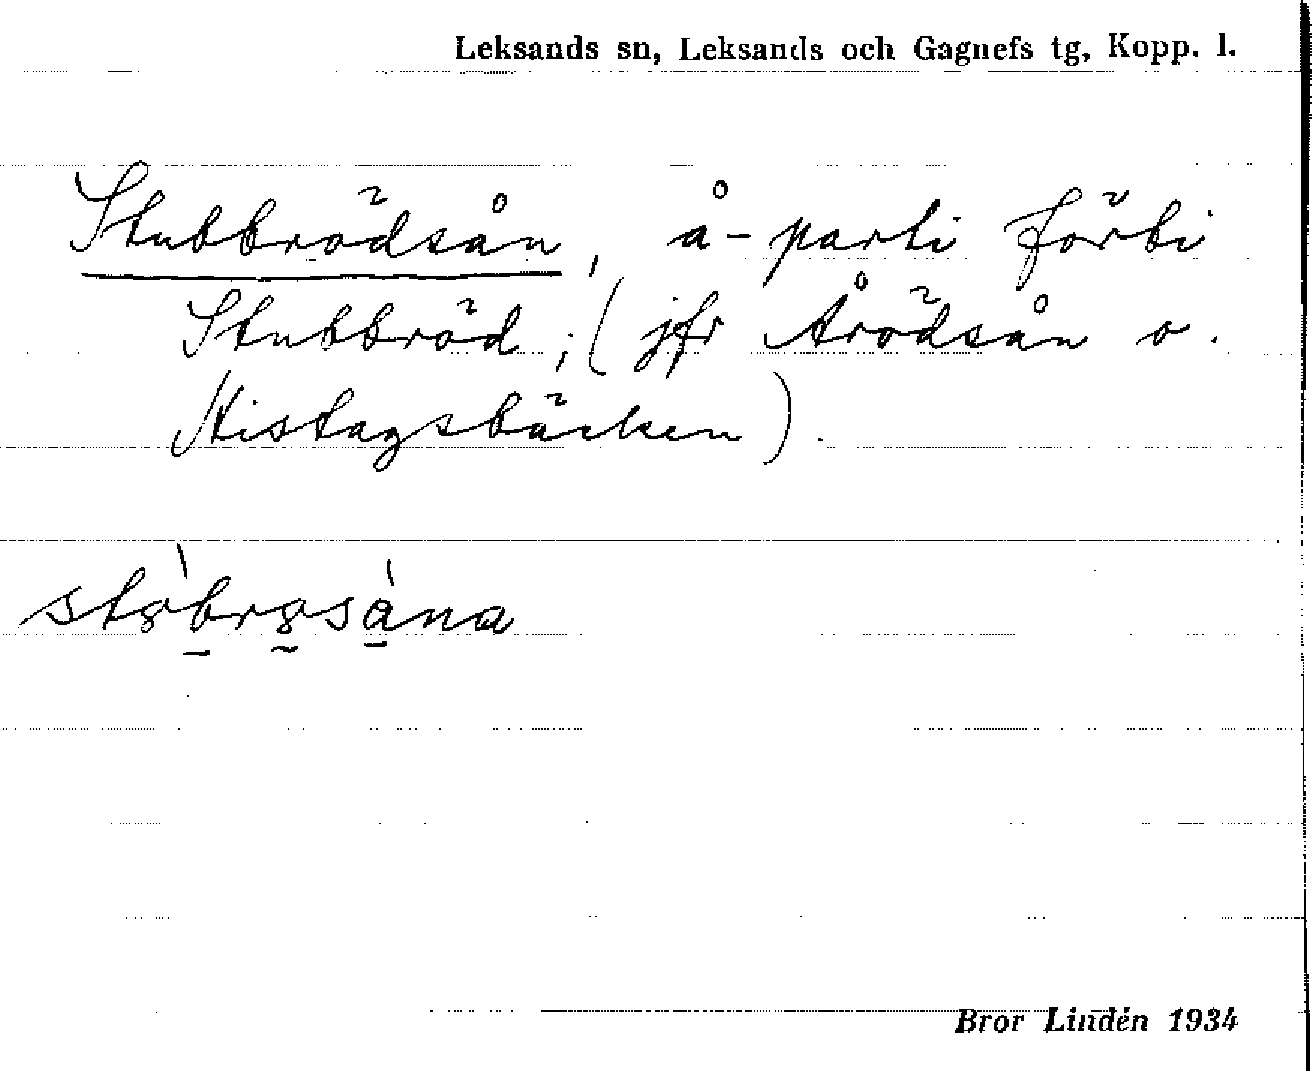 Leksands sn, Leksands och Gagnefs tg, Kopp. l.
Stubbrödsån, å-parti förbi
Stubbröd; (jfr Årödsån o.
Mistagsbäcken).
Bror Lindén 1934